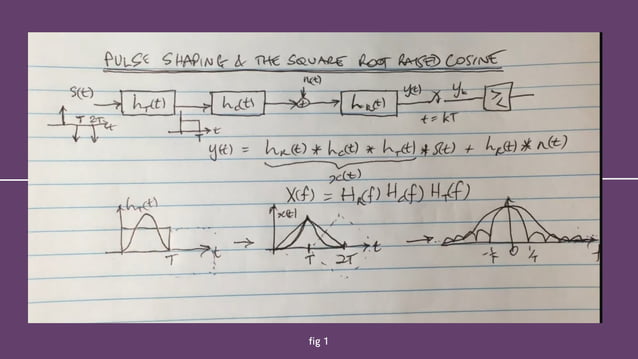 PULSE SHAPING & THE SQUARE ROOT RAISED COSINE
n(t)
S(t) h_T(t) h_c(t) + h_R(t) y(t) y_k ≷
T 2T t T t t = kT
y(t) = h_R(t) * h_c(t) * h_T(t) * s(t) + h_R(t) * n(t)
x(t)
X(f) = H_R(f) H_c(f) H_T(f)
h_T(t) x(t)
T t → T 2T t → -1/T 0 1/T f
fig 1